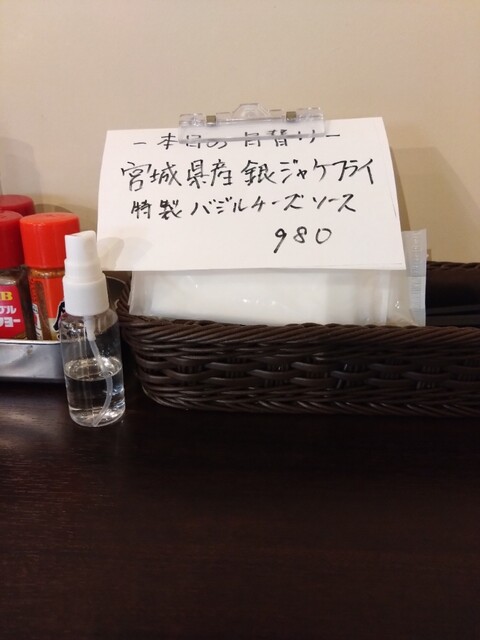 －本日の日替り－
宮城県産銀ジャケフライ
特製バジルチーズソース
980
B